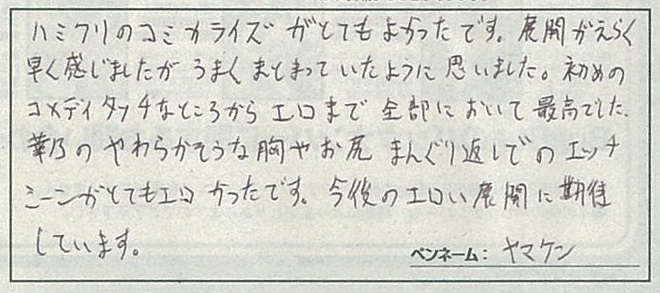 ハミクリのコミカライズがとてもよかったです。展開がえらく
早く感じましたがうまくまとまっていたように思いました。初めの
コメディタッチなところからエロまで全部において最高でした。
華乃のやわらかそうな胸やお尻まんぐり返しでのエッチ
シーンがとてもエロかったです。今後のエロい展開に期待
しています。
ペンネーム：ヤマケン